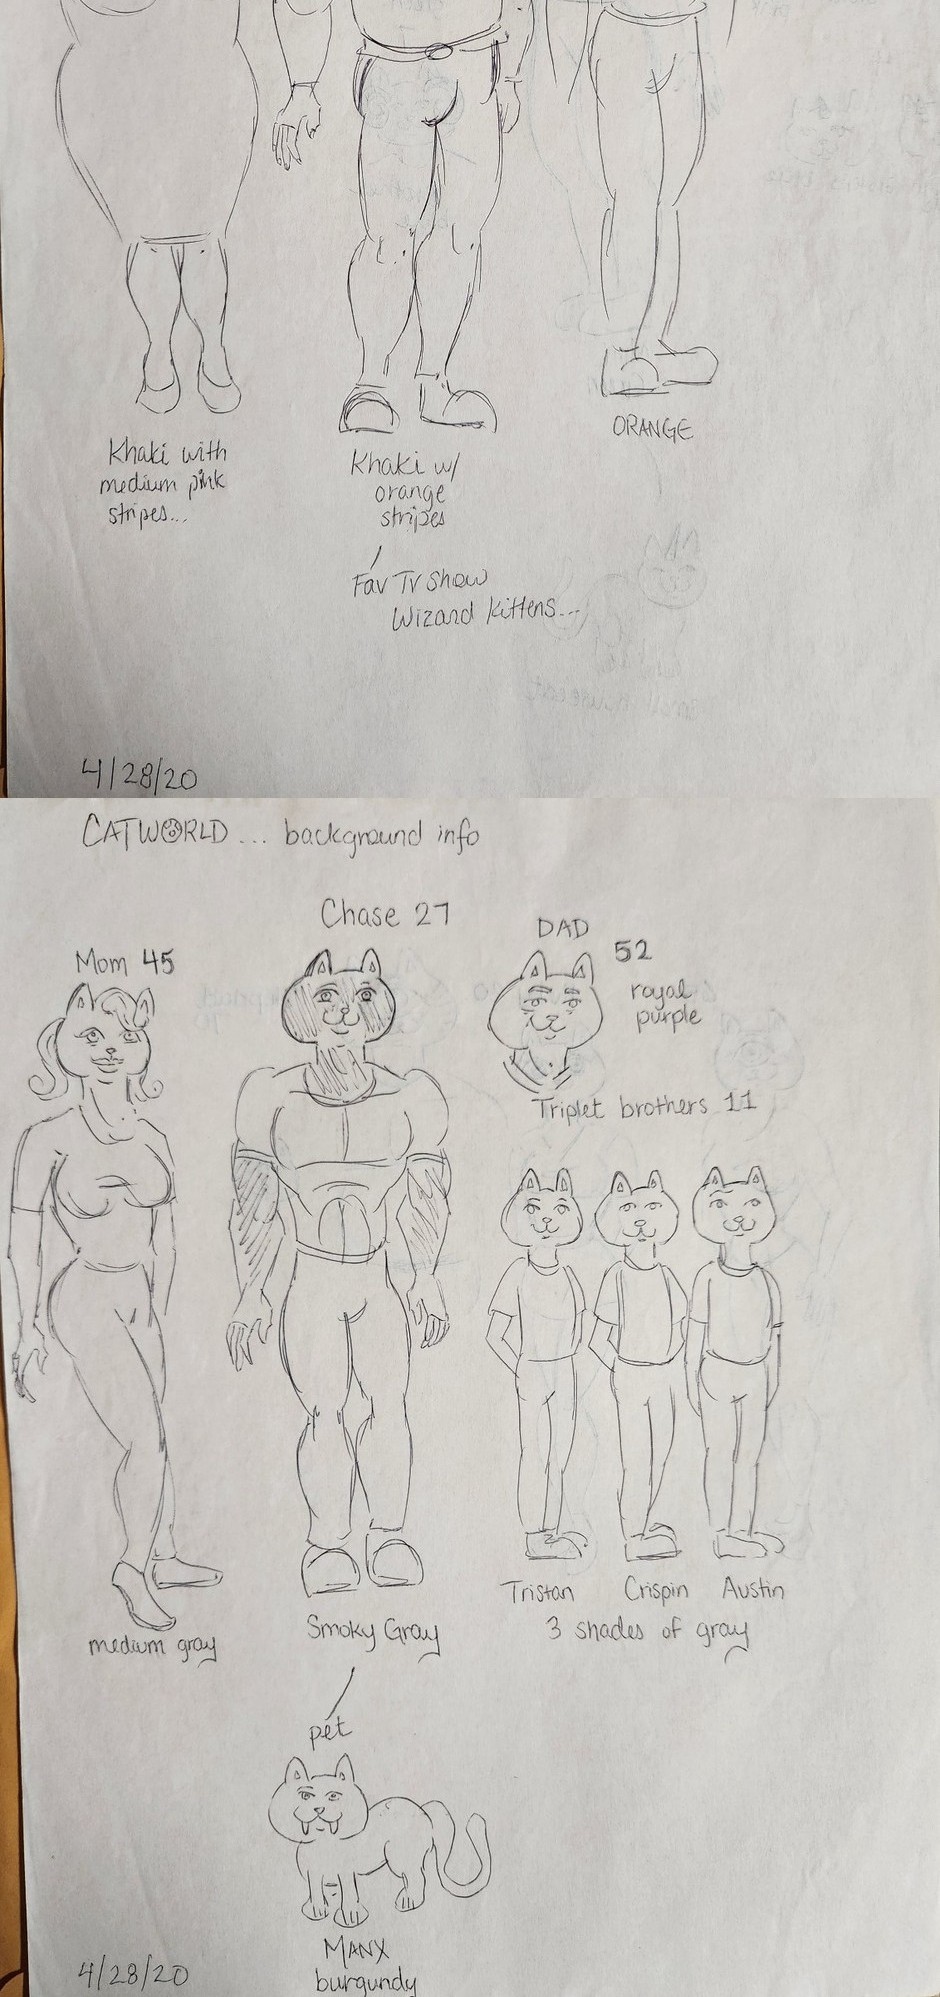 Khaki with
medium pink
stripes...
Khaki w/
orange
stripes
ORANGE
Fav TV show
Wizard Kittens...
4/28/20
CATWORLD... background info
Chase 27
Mom 45
DAD
52
royal
purple
Triplet brothers 11
Tristan Crispin Austin
3 shades of gray
medium gray
Smoky Gray
pet
MANX
burgundy
4/28/20